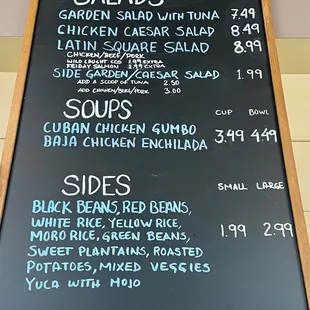 SALADS
GARDEN SALAD WITH TUNA 7.49
CHICKEN CAESAR SALAD 8.49
LATIN SQUARE SALAD 8.99
CHICKEN/BEEF/PORK
WILD CAUGHT COD 1.99 EXTRA
FRIDAY SALMON 1.99 EXTRA
SIDE GARDEN/CAESAR SALAD 1.99
ADD A SCOOP OF TUNA 2.50
ADD CHICKEN/BEEF/PORK 3.00
SOUPS CUP BOWL
CUBAN CHICKEN GUMBO
BAJA CHICKEN ENCHILADA 3.49 4.49
SIDES SMALL LARGE
BLACK BEANS, RED BEANS,
WHITE RICE, YELLOW RICE,
MORO RICE, GREEN BEANS, 1.99 2.99
SWEET PLANTAINS, ROASTED
POTATOES, MIXED VEGGIES
YUCA WITH MOJO